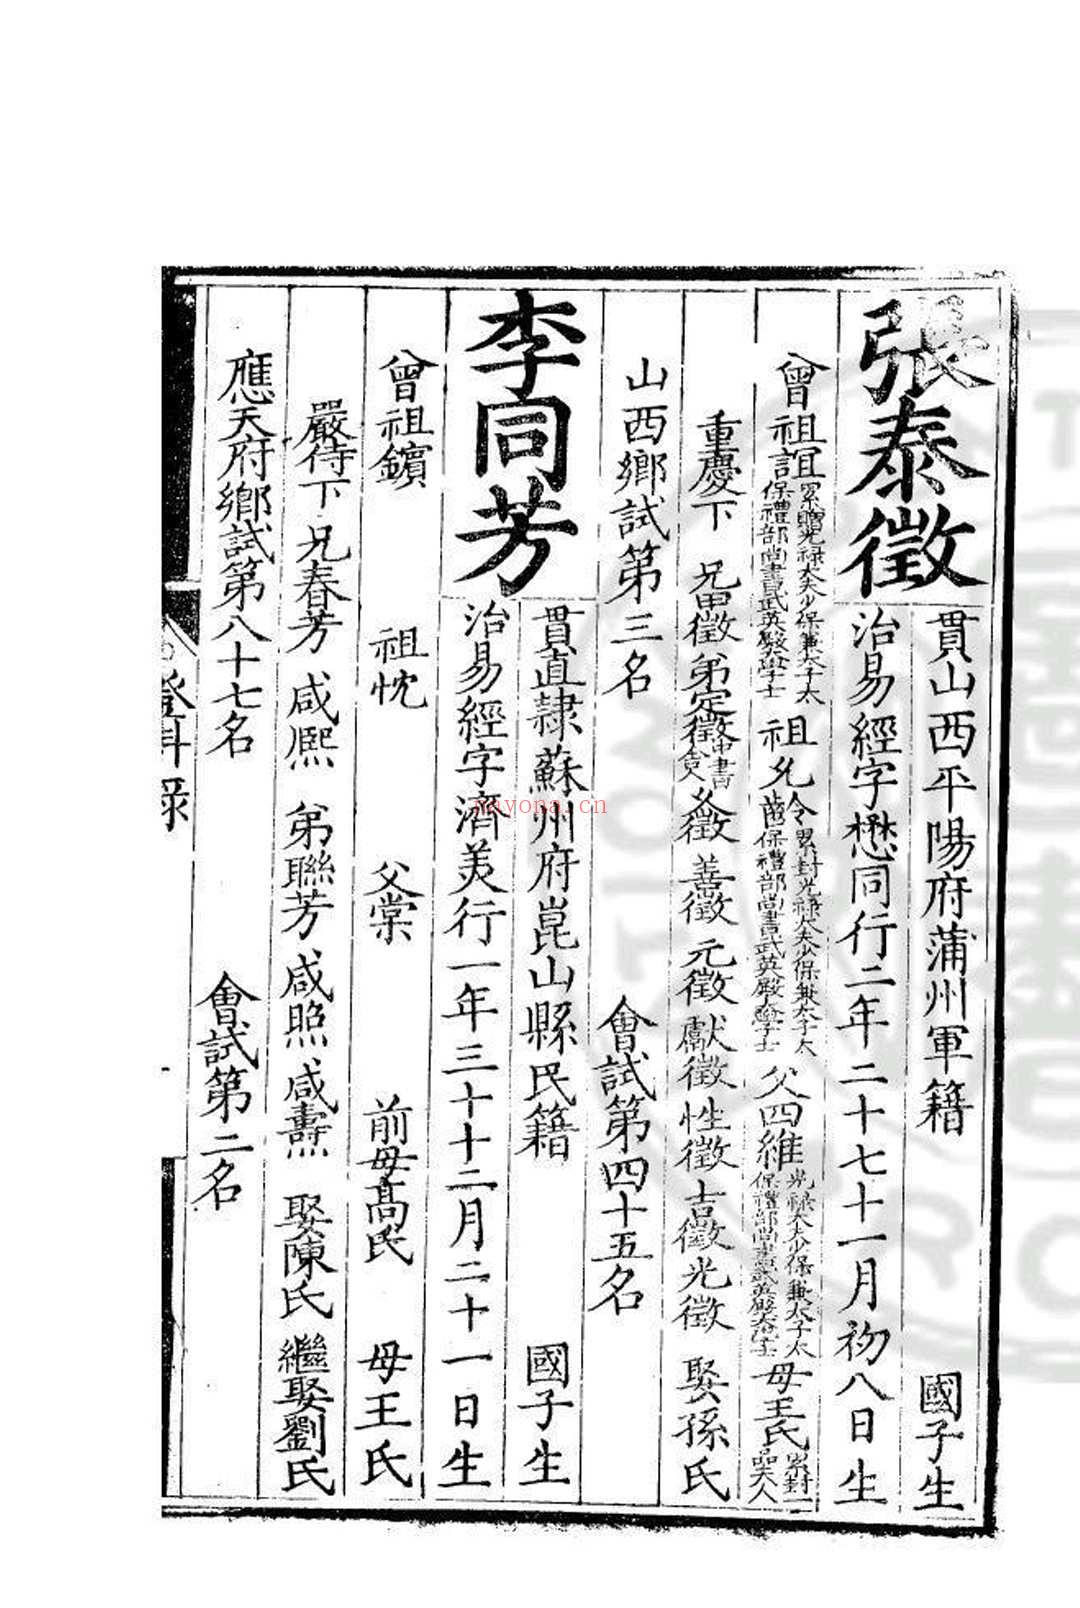 張泰徵
貫山西平陽府蒲州軍籍 國子生
治易經字懋同行二年二十七十一月初八日生
曾祖誼累贈光祿大夫少保兼太子太保禮部尚書武英殿大學士 祖允令累封光祿大夫少保兼太子太保禮部尚書武英殿大學士 父四維光祿大夫少保兼太子太保禮部尚書武英殿大學士 母王氏累封一品夫人
重慶下 兄甲徵 弟定徵中書 久徵 善徵 元徵 獻徵 性徵 吉徵 光徵 娶孫氏
山西鄉試第三名 會試第四十五名
李同芳
貫直隸蘇州府崑山縣民籍 國子生
治易經字濟美行一年三十十二月二十一日生
曾祖鑌 祖忱 父棠 前母高氏 母王氏
嚴侍下 兄春芳 咸熙 弟聯芳 咸照 咸燾 娶陳氏 繼娶劉氏
應天府鄉試第八十七名 會試第二名
登科錄
nayona.cn